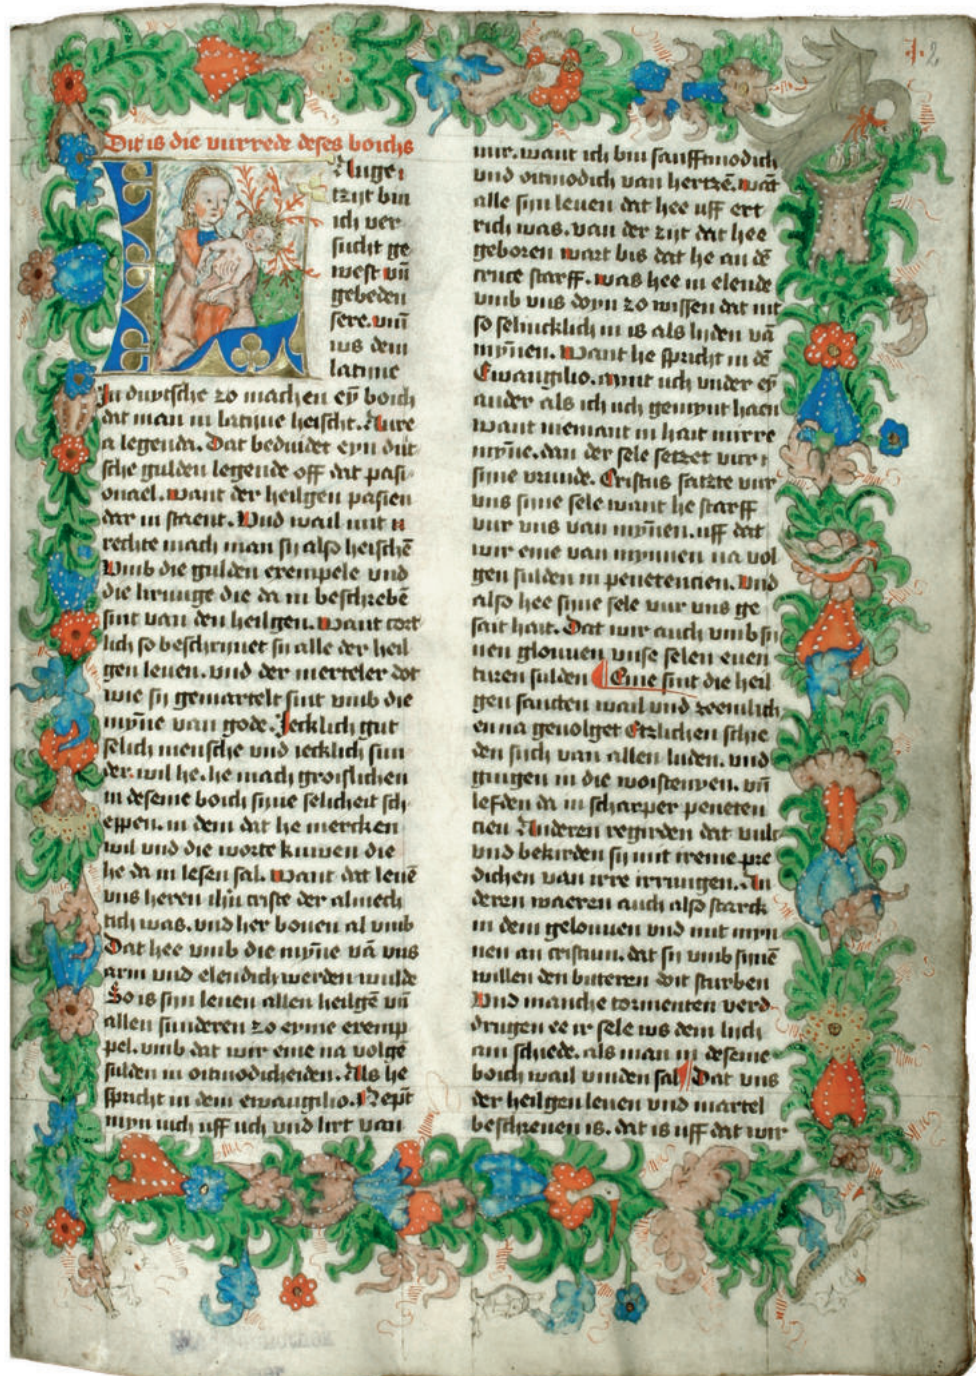 Dit is die vurrede deses boichs
Lange
tzijt bin
ich ver
sucht ge
west vñ
gebeden
sere. vm̄
uis dem
latine
In duytsche zo machen eyn̄ boich
dat man in latine heischt. Aure
a legenda. Dat beduidet eyn dut
sche gulden legende off dat pasi
onael. want der heilgen pasien
dar in staent. Vnd wail mit
rechte mach man sij also heischē
Vmb die gulden exempele vnd
die leringe die da in beschrebē
sint van den heilgen. want cort
lich so beschrijuet sij alle der heil
gen leuen. vnd der merteler dot
wie sij gemartelt sint vmb die
myn̄e van gode. Jecklich gut
selich mensche vnd iecklich sun
der. wil he. he mach groislichen
in deseme boich sijne selicheit sch
eppen. in dem dat he mercken
wil vnd die worte kuwen die
he da in lesen sal. want dat leuē
vns heren ihū criste der almech
tich was. vnd her bouen al vmb
Dat hee vmb die myn̄e vā vns
arm vnd elendich werden wulde
So is sijn leuen allen heilgē vn̄
allen sunderen zo eyme exemp
pel. vmb dat wir eme na volgē
sulden in oitmodicheiden. Als he
spricht in dem ewangilio. Nept
myn iuch uff uch vnd lirt van
mir. want ich bin sanfftmodich
vnd oitmodich van hertzē. wāt
alle sijn leuen dat hee uff ert
rich was. van der zijt dat hee
geboren wart bis dat he an dē
cruce starff. was hee in elende
vmb vns doyn zo wissen dat nit
so selincklich in is als lyden vā
myn̄en. Want he spricht in dē
Ewangilio. mynt uch vnder eȳ
ander als ich uch gemynt haen
want niemant in hait mirre
myn̄e. dan der sele setzet vur
sijne vrunde. Cristus satzte vur
vns sijne sele want he starff
vur vns van myn̄en. uff dat
wir eme van mynnen na vol
gen sulden in penetencien. Vnd
also hee sijne sele vur vns ge
sait hait. Dat wir auch vmb sij
nen glouuen vnse selen euen
turen sulden Eme sint die heil
gen sancten wail vnd zeemlich
en na geuolget Etzlichen schie
den sich van allen luden. vnd
gingen in die woistenyen. vn̄
lefden da in scharper peneten
cien Anderen regirden dat vulc
vnd bekirden sij mit ireme pre
dichen van irre irrungen. An
deren waeren auch also starck
in dem gelouuen vnd mit myn
nen an cristum. dat sij vmb sijnē
willen den bitteren doit sturben
Vnd manche tormenten verd
drugen ee ir sele uis dem lich
am schiede. als man in deseme
boich wail vinden sal Dat vns
der heilgen leuen vnd martel
beschreuen is. dat is uff dat wir